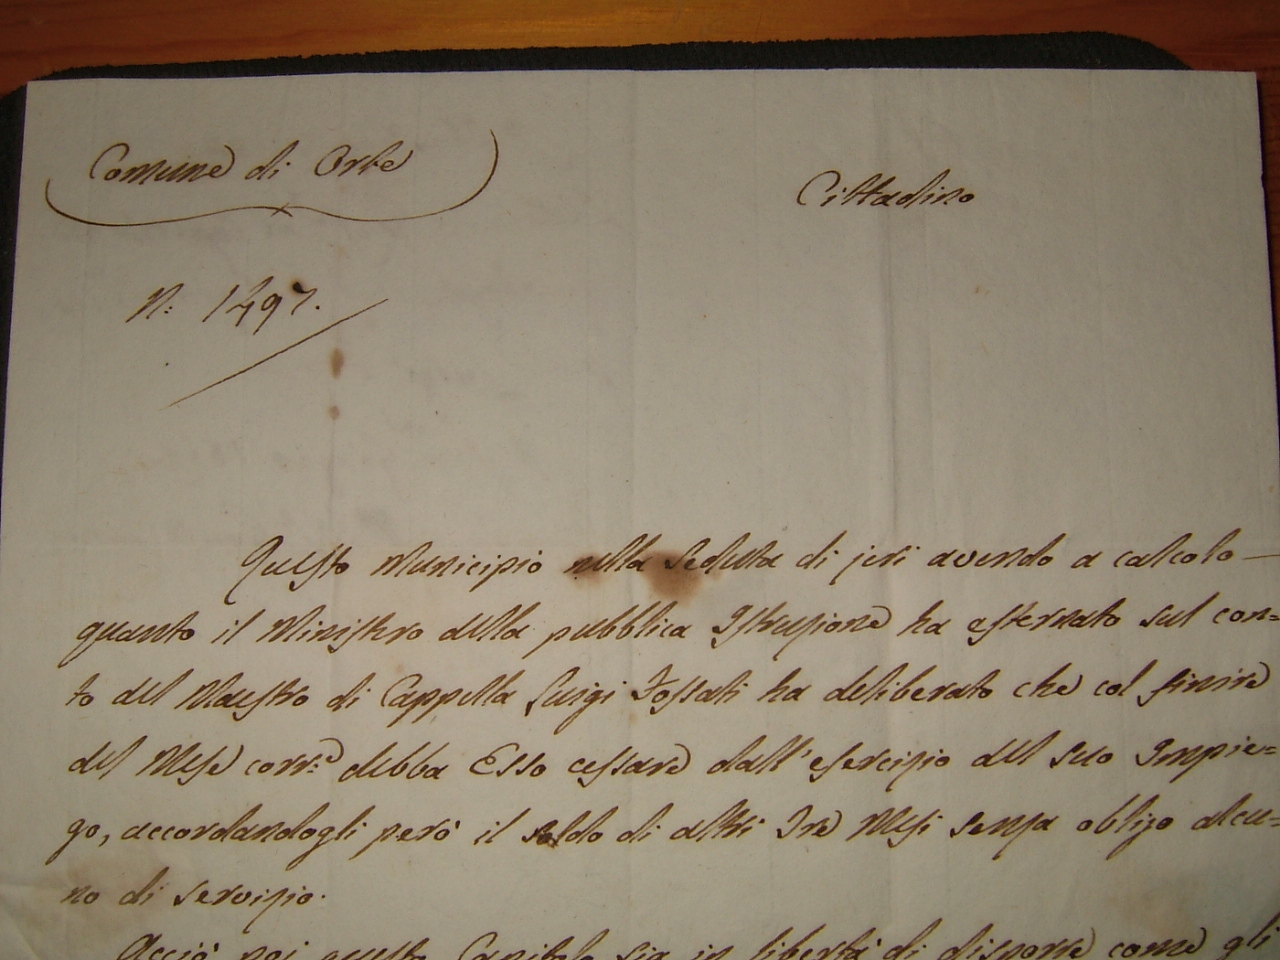 Comune di Orte
Cittadino
N: 1497.
Questo Municipio nella Seduta di jeri avendo a calcolo
quanto il Ministro della pubblica Istruzione ha esternato sul con=
to del Maestro di Cappella Luigi Fossati ha deliberato che col finire
del Mese corr.e debba Esso cessare dall'esercizio del suo Impie=
go, accordandogli però il soldo di altri Tre Mesi senza obligo alcu=
no di servizio.
Acciò poi questo Capitolo sia in libertà di disporre come gli